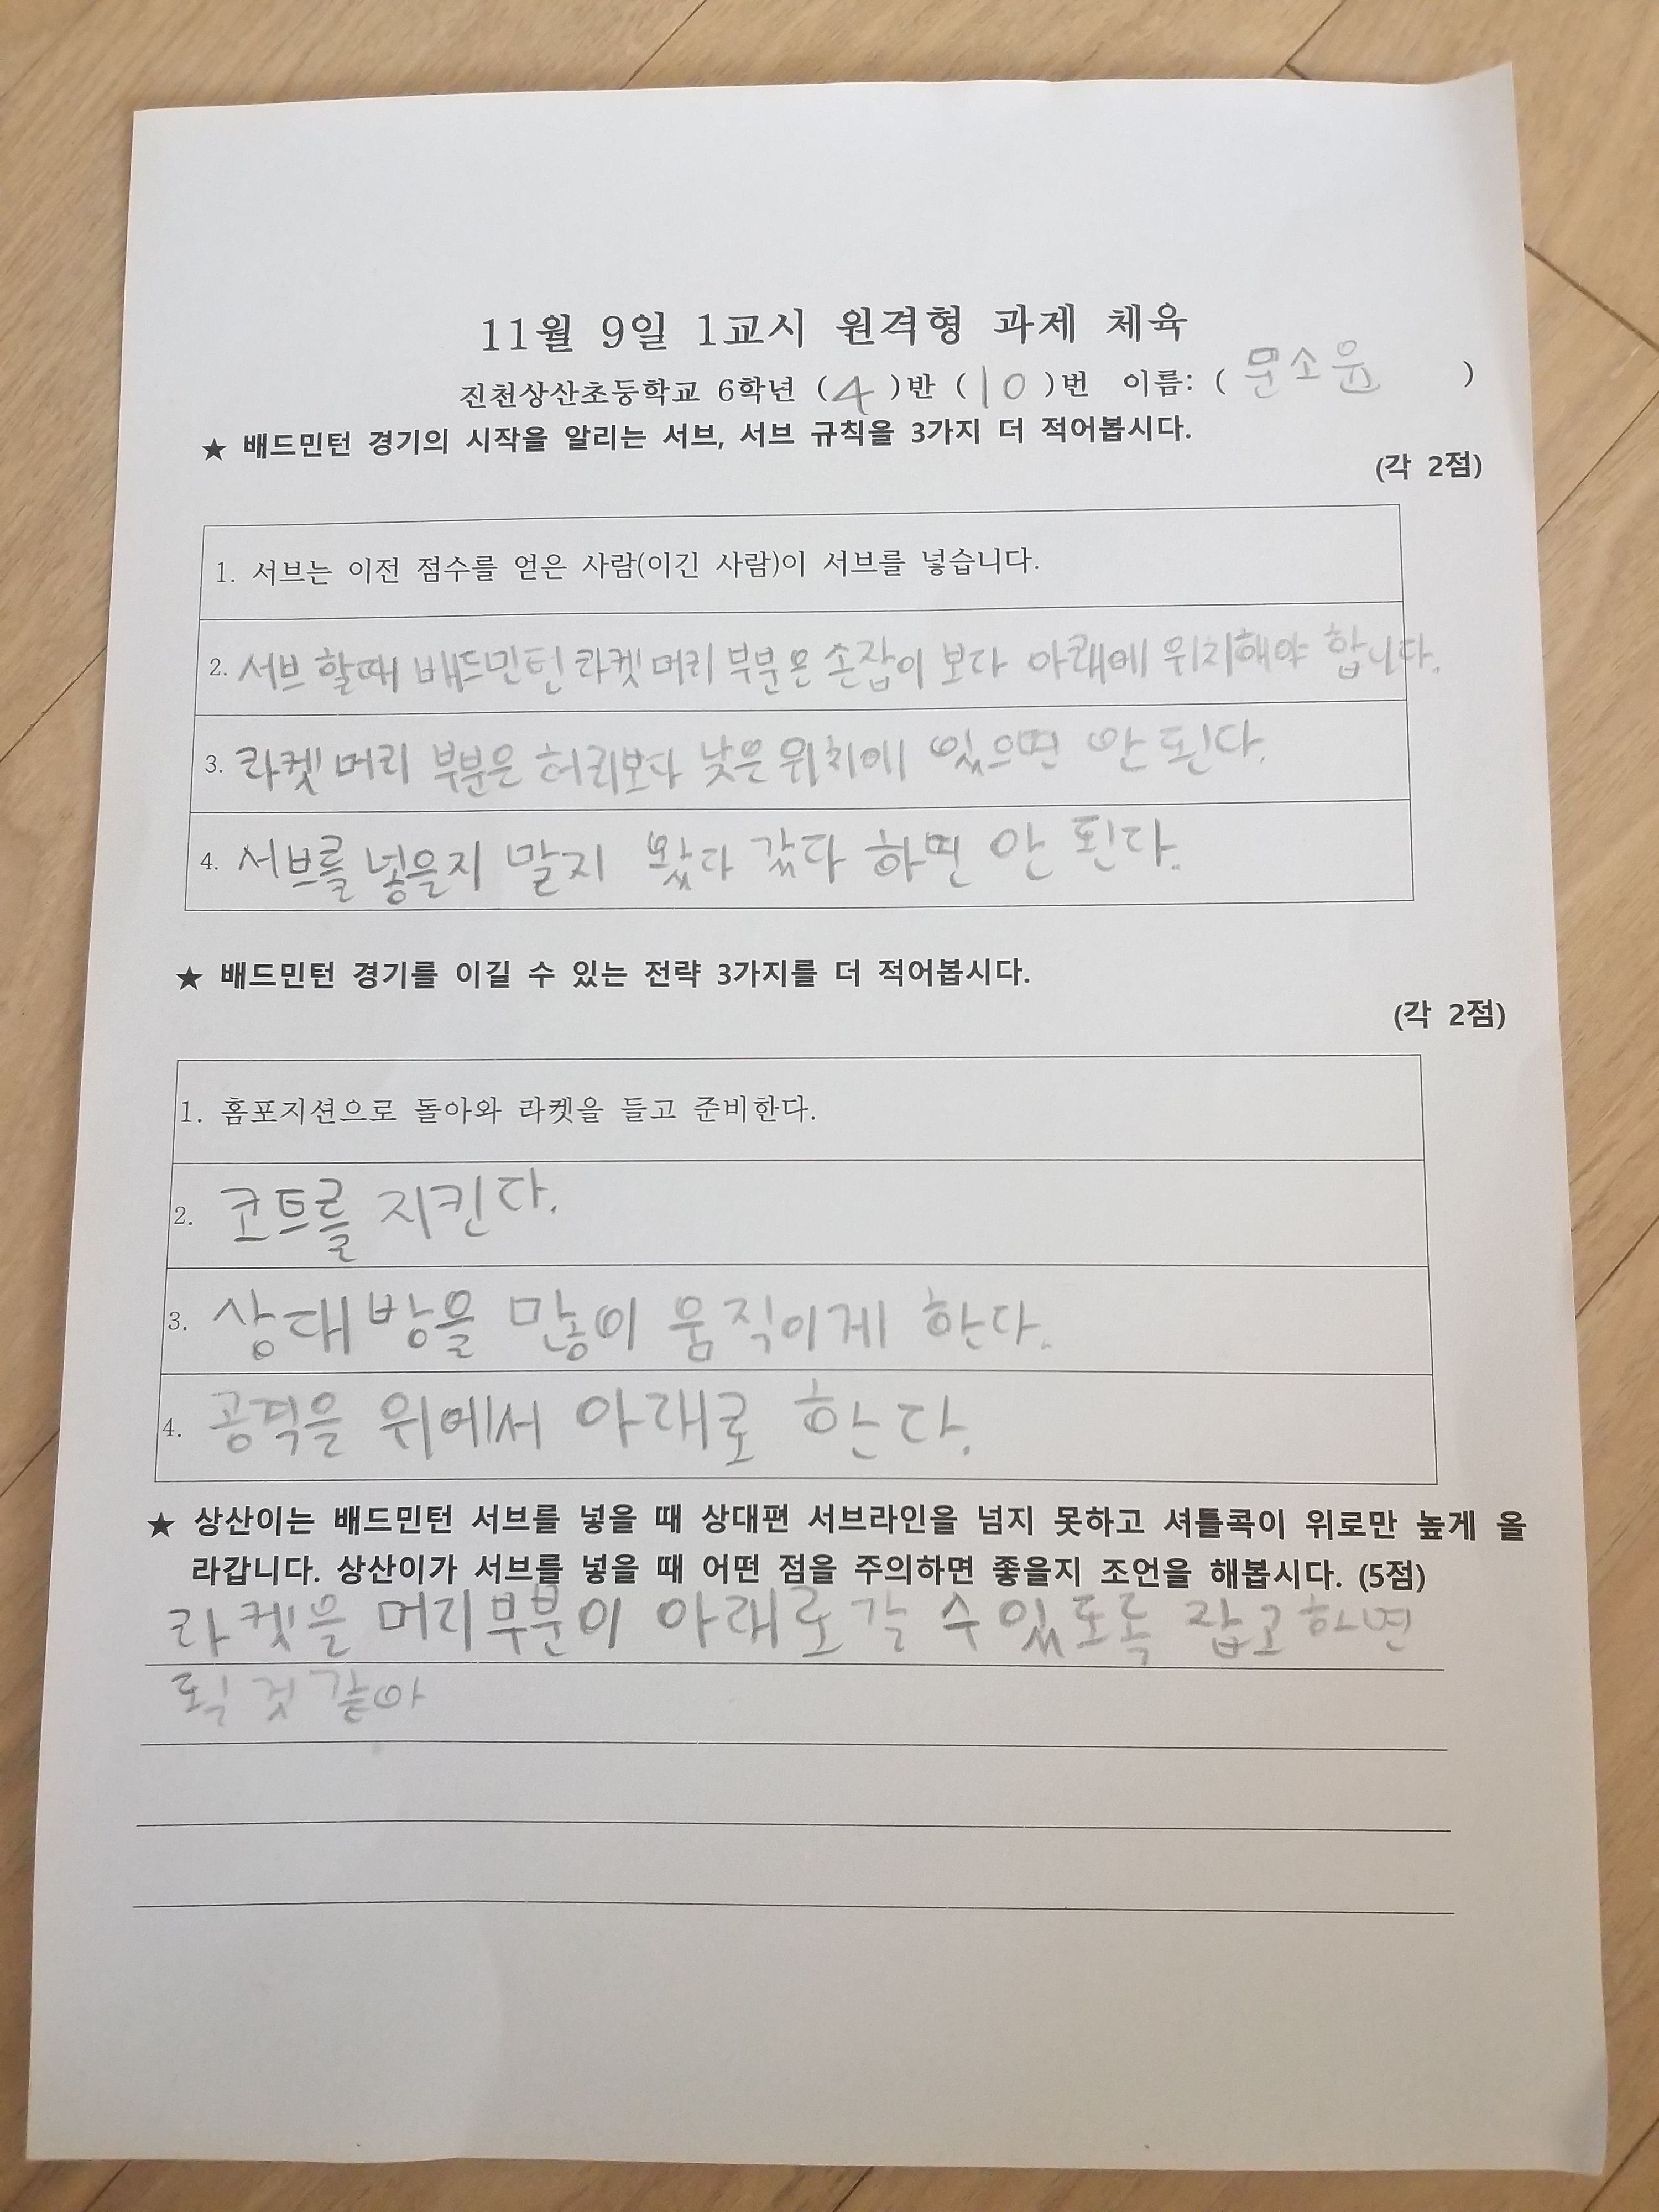 11월 9일 1교시 원격형 과제 체육
진천상산초등학교 6학년 (4)반 (10)번 이름: (문소윤)
★ 배드민턴 경기의 시작을 알리는 서브, 서브 규칙을 3가지 더 적어봅시다.
(각 2점)
1. 서브는 이전 점수를 얻은 사람(이긴 사람)이 서브를 넣습니다.
2. 서브 할때 배드민턴 라켓 머리 부분은 손잡이 보다 아래에 위치해야 합니다.
3. 라켓 머리 부분은 허리보다 낮은 위치에 있으면 안 된다.
4. 서브를 넣을지 말지 왔다 갔다 하면 안 된다.
★ 배드민턴 경기를 이길 수 있는 전략 3가지를 더 적어봅시다.
(각 2점)
1. 홈포지션으로 돌아와 라켓을 들고 준비한다.
2. 코트를 지킨다.
3. 상대방을 많이 움직이게 한다.
4. 공격을 위에서 아래로 한다.
★ 상산이는 배드민턴 서브를 넣을 때 상대편 서브라인을 넘지 못하고 셔틀콕이 위로만 높게 올
라갑니다. 상산이가 서브를 넣을 때 어떤 점을 주의하면 좋을지 조언을 해봅시다. (5점)
라켓을 머리부분이 아래로 갈 수 있도록 잡고 하면
될 것 같아